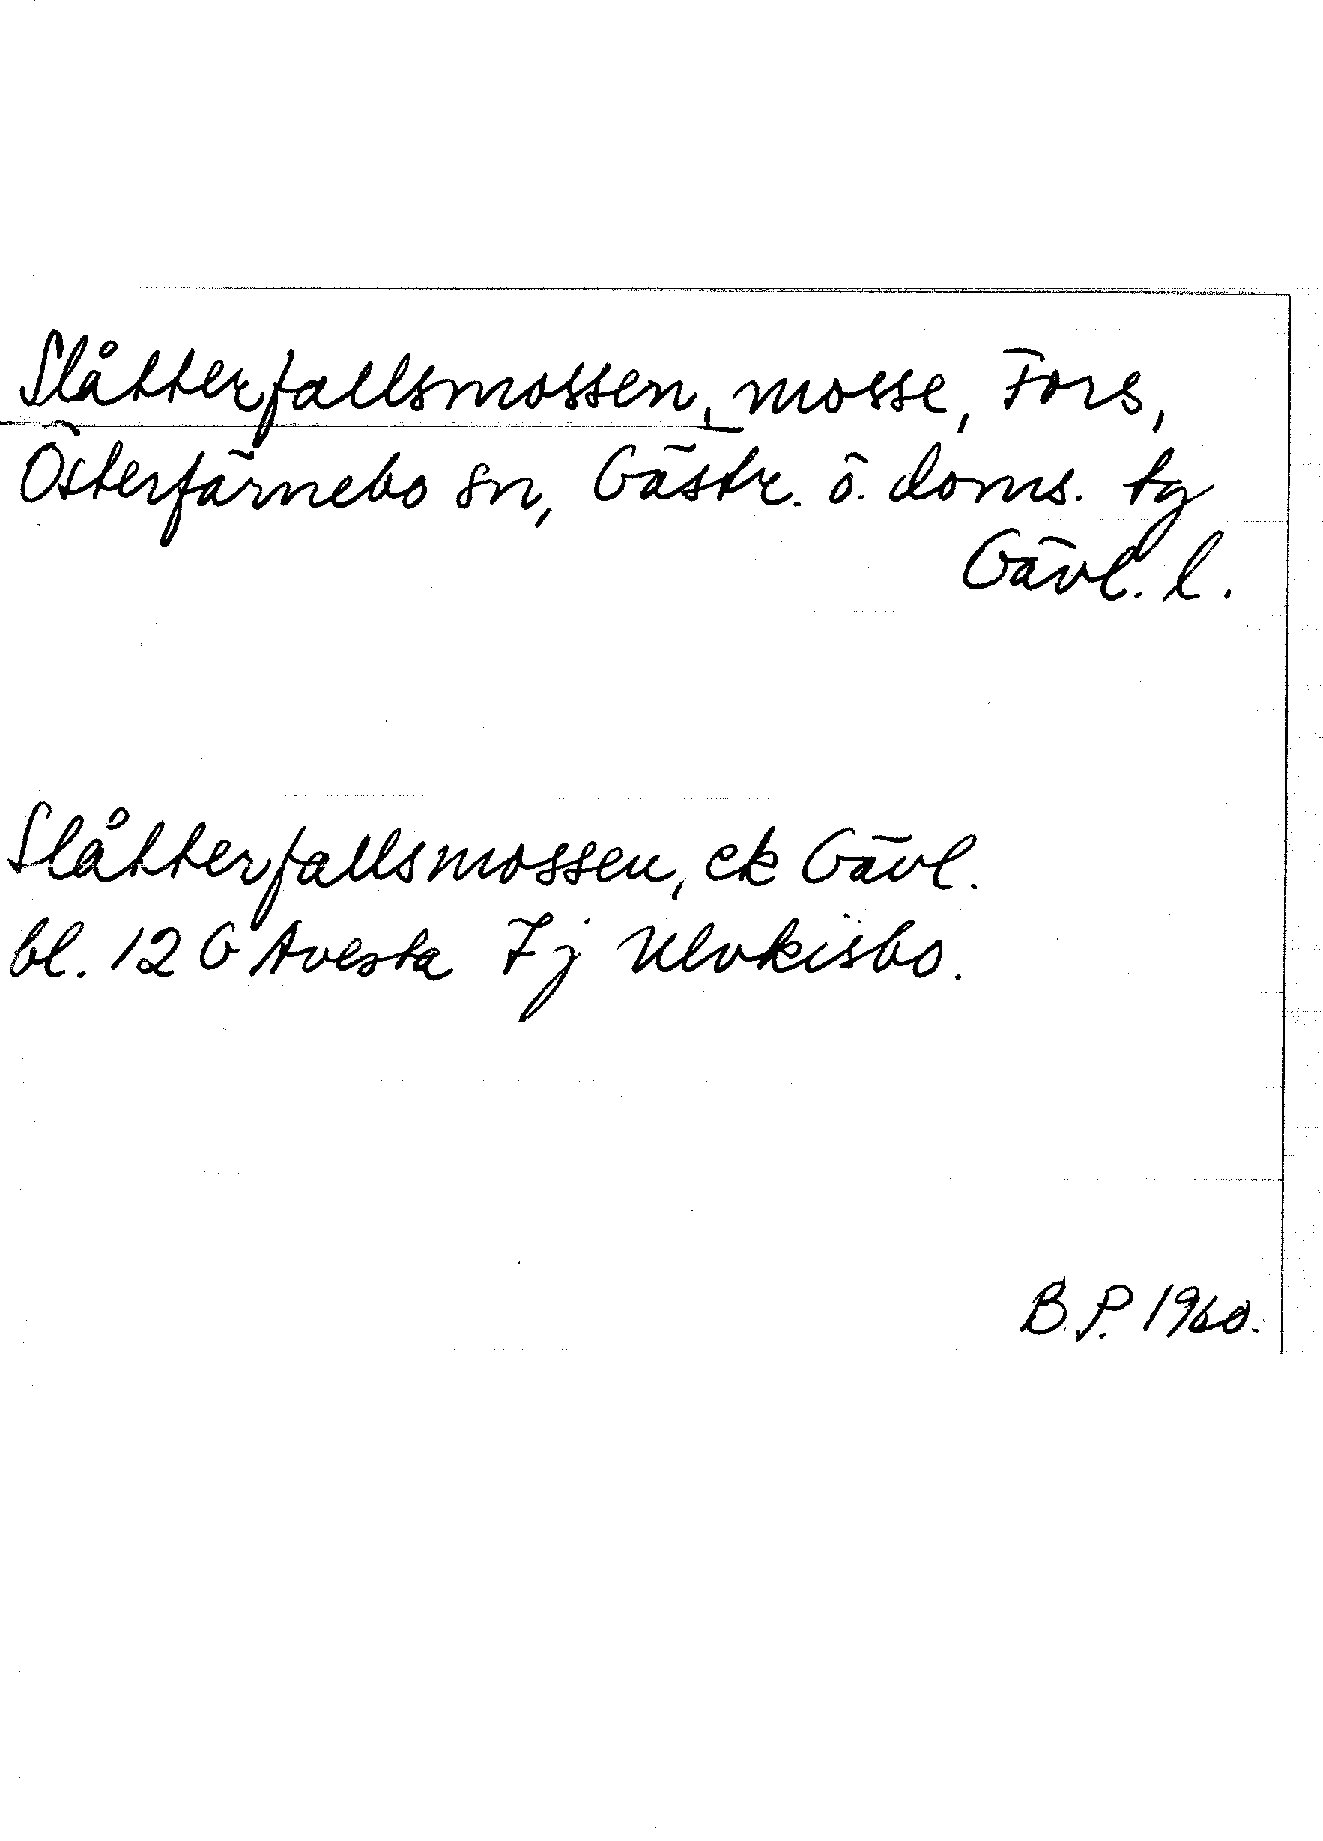 Slåtterfallsmossen, mosse, Fors,
Österfärnebo sn, Gästr. ö. doms. tg
Gävl. l.
Slåtterfallsmossen, ek Gävl.
bl. 12 G Avesta 7j Ulvkisbo.
B.P. 1960.